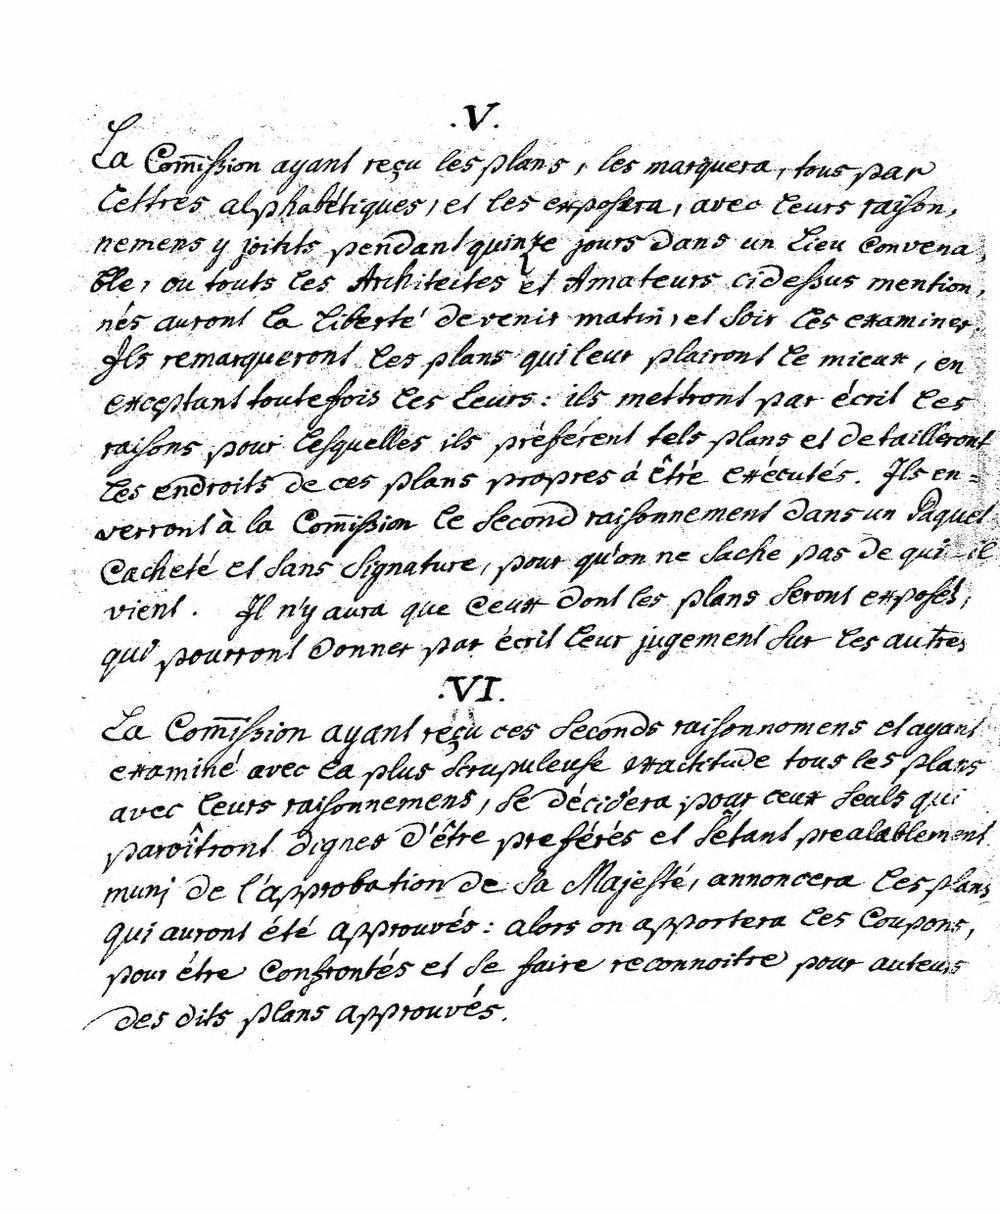 .V.
La Com̅ission ayant reçu les plans, les marquera, tous par
lettres alphabétiques, et les exposera, avec leurs raison,
nemens y joints pendant quinze jours dans un Lieu Convena,
ble, ou touts les Architectes et Amateurs cidessus mention,
nés auront la liberté de venir matin, et soir les examiner.
Ils remarqueront les plans qui leur plairont le mieux, en
exceptant toutefois les leurs: ils mettront par écrit les
raisons pour lesquelles ils préférent tels plans et detailleront
les endroits de ces plans propres á être exécutés. Ils en=
verront à la Com̅ission le second raisonnement dans un Paquet
Cacheté et sans signature, pour qu'on ne sache pas de qui il
vient. Il n'y aura que Ceux dont les plans seront exposés,
qui pourront donner par écrit leur jugement sur les autres
.VI.
La Com̅ission ayant reçu ces seconds raisonnemens et ayant
examiné avec la plus scrupuleuse exactitude tous les plans
avec leurs raisonnemens, se décidera pour ceux seuls qui
paroîtront dignes d'être preférés et s'étant prealablement
muni de l'approbation de Sa Majesté, annoncera les plans
qui auront été approuvés: alors on apportera les Coupons,
pour étre Confrontés et se faire reconnoitre pour auteurs
des dits plans approuvés.